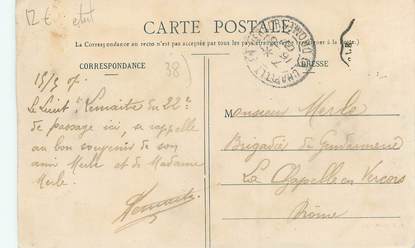 12 €
CARTE POSTALE
(La Correspondance au recto n'est pas acceptée par tous les pays étrangers
CORRESPONDANCE
ADRESSE
(38)
15/5 07.
Le Lieut Lemaitre du 22e
de passage ici, se rappelle
au bon souvenir de son
ami Merle et de Madame
Merle.
Lemaitre
Monsieur Merle
Brigadier de Gendarmerie
La Chapelle en Vercors
Drôme